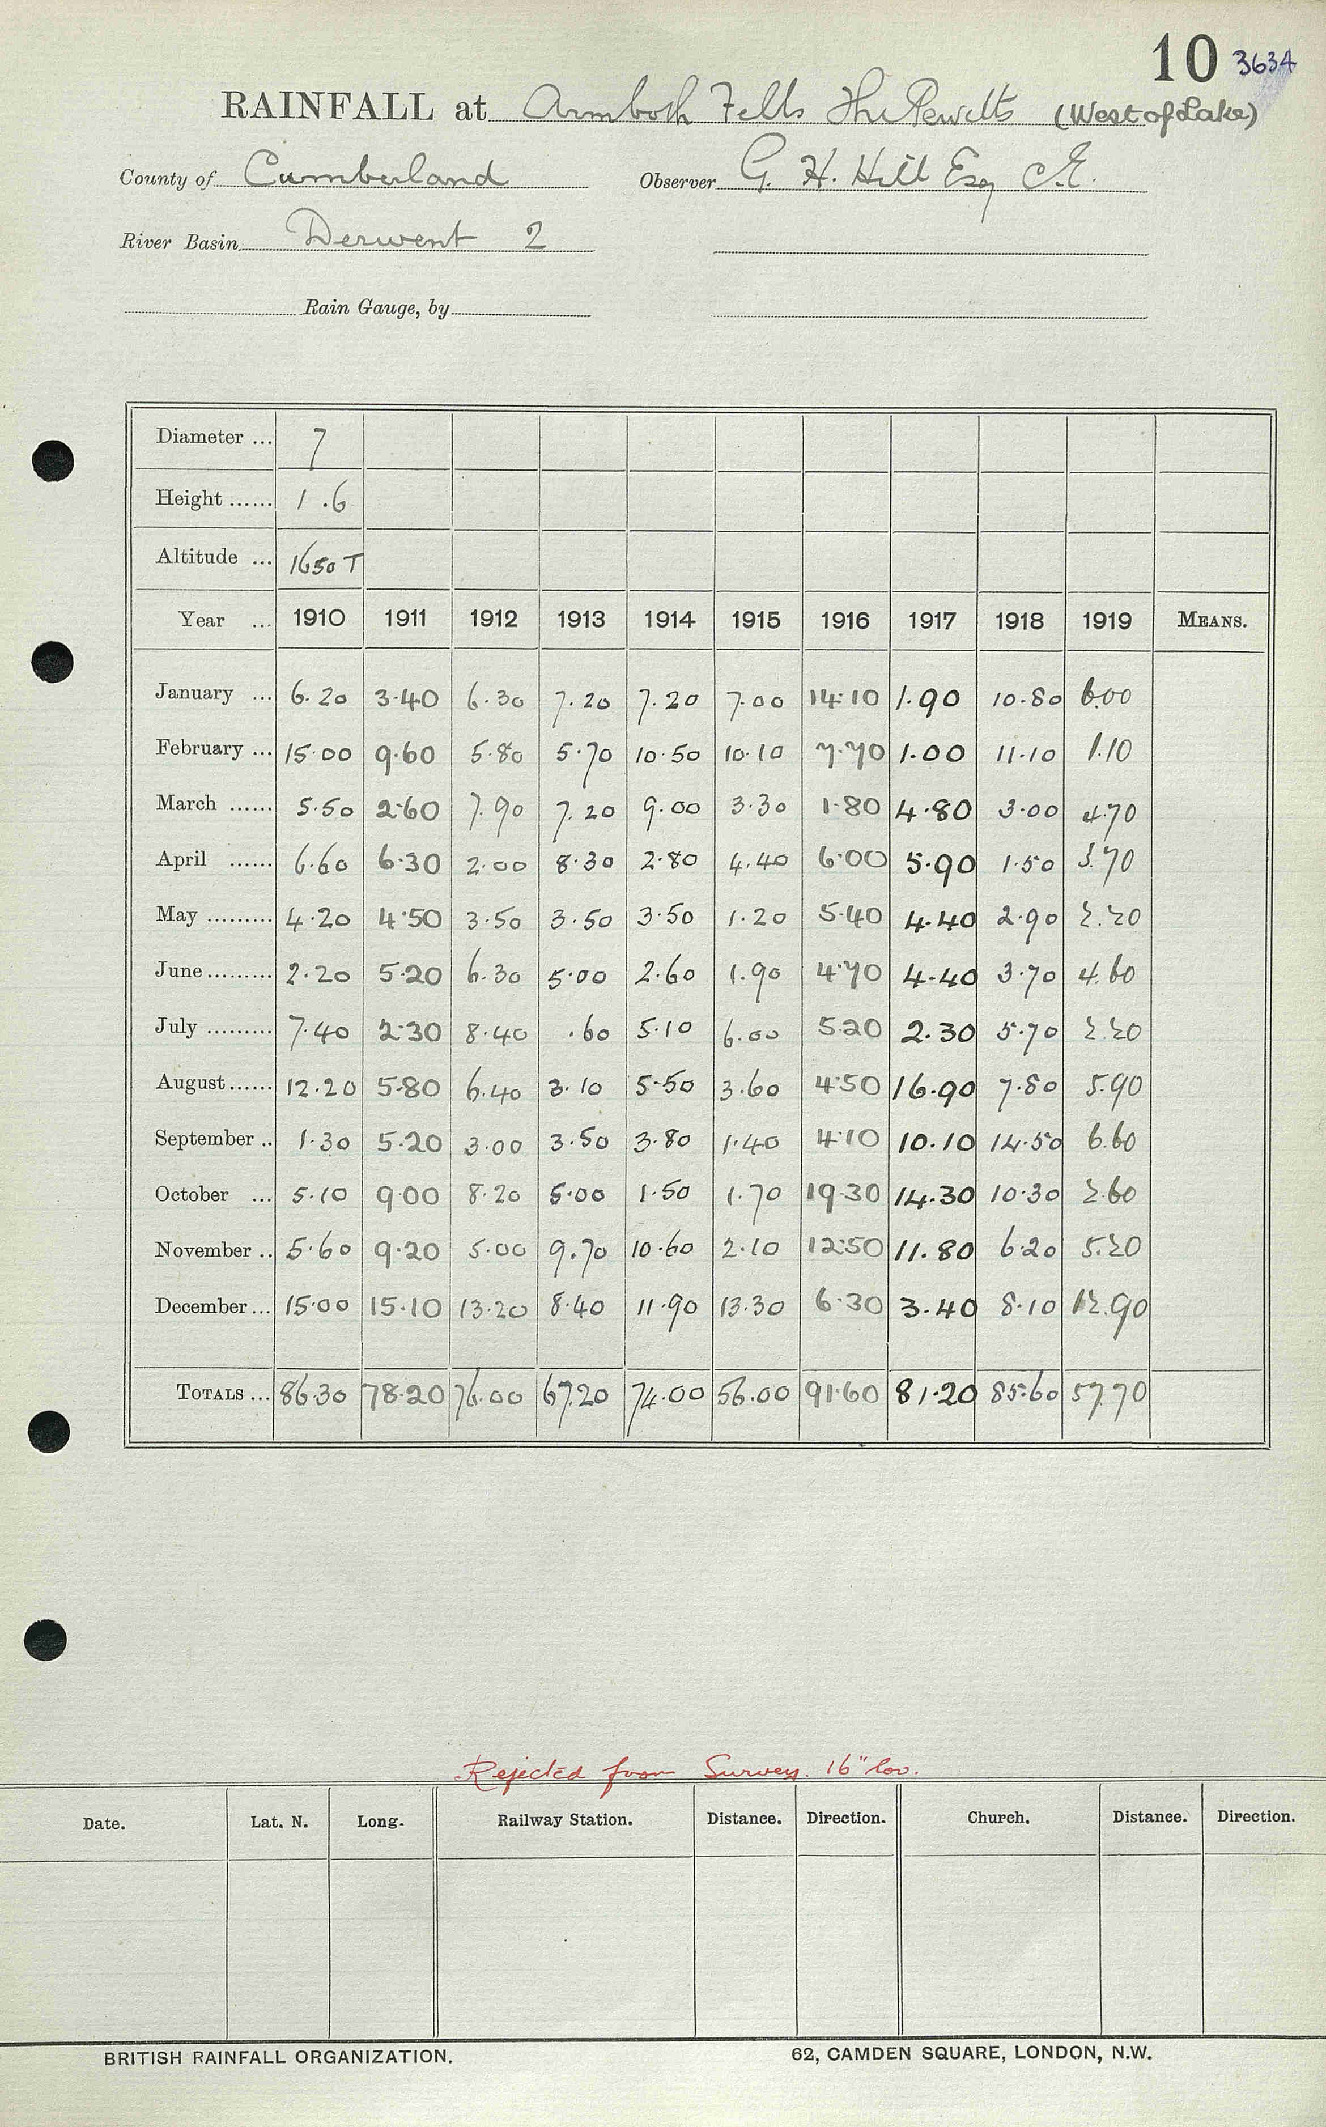 10 3634
RAINFALL at Armboth Fells The Pewitts (West of Lake)
County of Cumberland Observer G. H. Hill Esq C.E.
River Basin Derwent 2
Rain Gauge, by
Diameter ... 7
Height ...... 1.6
Altitude ... 1650 T
Year ... 1910 1911 1912 1913 1914 1915 1916 1917 1918 1919 MEANS.
January ... 6.20 3.40 6.30 7.20 7.20 7.00 14.10 1.90 10.80 6.00
February ... 15.00 9.60 5.80 5.70 10.50 10.10 7.70 1.00 11.10 1.10
March ...... 5.50 2.60 7.90 7.20 9.00 3.30 1.80 4.80 3.00 4.70
April ...... 6.60 6.30 2.00 8.30 2.80 4.40 6.00 5.90 1.50 3.70
May ......... 4.20 4.50 3.50 3.50 3.50 1.20 5.40 4.40 2.90 2.20
June ......... 2.20 5.20 6.30 5.00 2.60 1.90 4.70 4.40 3.70 4.60
July ......... 7.40 2.30 8.40 .60 5.10 6.00 5.20 2.30 5.70 2.20
August ...... 12.20 5.80 6.40 3.10 5.50 3.60 4.50 16.90 7.80 5.90
September .. 1.30 5.20 3.00 3.50 3.80 1.40 4.10 10.10 14.50 6.60
October ... 5.10 9.00 8.20 5.00 1.50 1.70 19.30 14.30 10.30 2.60
November .. 5.60 9.20 5.00 9.70 10.60 2.10 12.50 11.80 6.20 5.20
December ... 15.00 15.10 13.20 8.40 11.90 13.30 6.30 3.40 8.10 12.90
TOTALS ... 86.30 78.20 76.00 67.20 74.00 56.00 91.60 81.20 85.60 57.70
Rejected from Survey. 16" low.
Date. Lat. N. Long. Railway Station. Distance. Direction. Church. Distance. Direction.
BRITISH RAINFALL ORGANIZATION. 62, CAMDEN SQUARE, LONDON, N.W.